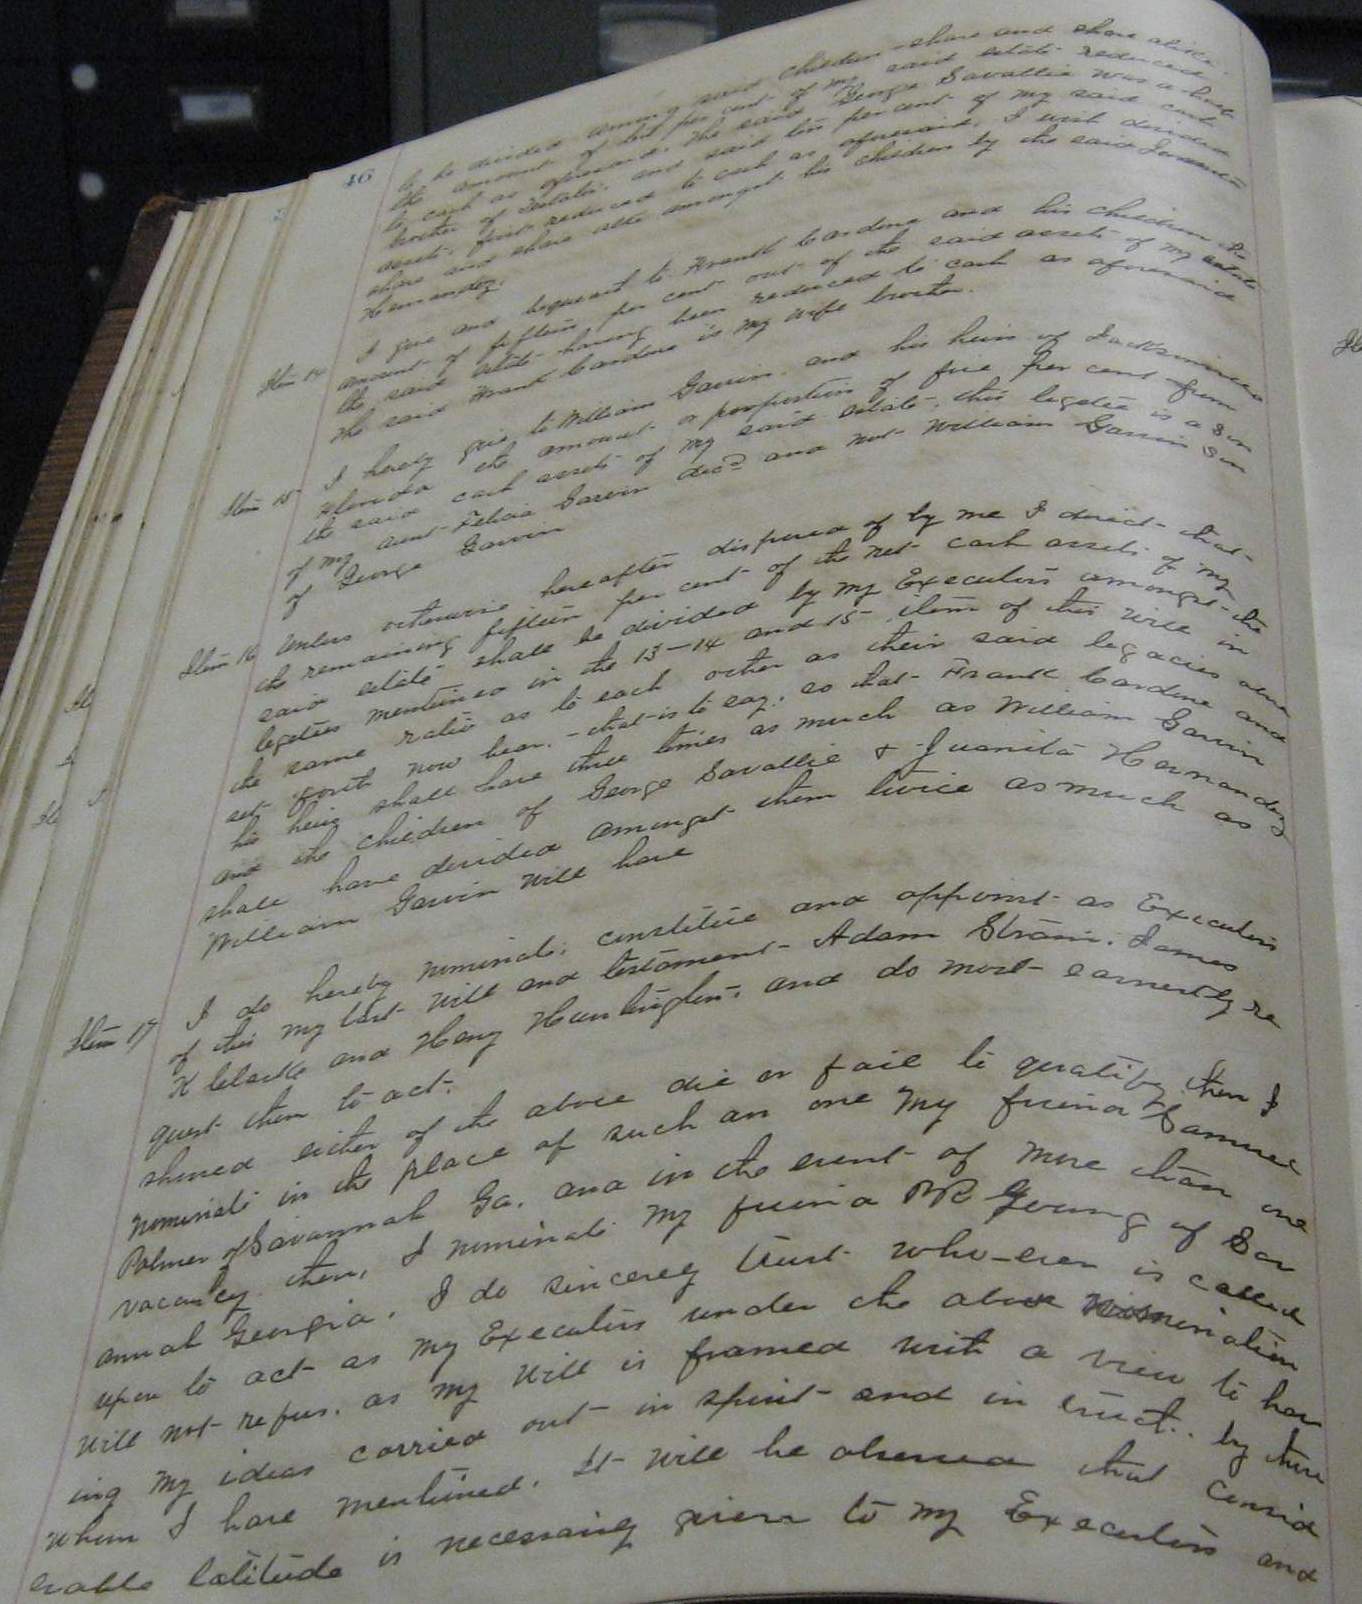 46
to be divided among said children share and share alike.
the amount of ten per cent of my said estate reduced
to cash as aforesaid. The said George Savallie was a half
brother of Testator, and said ten per cent of my said cash
assets, first reduced to cash as aforesaid, I wish divided
share and share alike amongst his children by the said Juanita
Hernandez.
Item 14 I give and bequeath to Frank Cardine and his children the
amount of fifteen per cent out of the said assets of my estate
the said estate having been reduced to cash as aforesaid
the said Frank Cardine is my wifes brother.
Item 15 I hereby give to William Garvin and his heirs of Jacksonville
Florida the amount or proportion of five per cent from
the said cash assets of my said estate, this legatee is a son
of my aunt Felicia Garvin decd and not William Garvin Son
of George Garvin
Item 16 Unless otherwise hereafter disposed of by me I direct that
the remaining fifteen per cent of the net cash assets of my
said estate shall be divided by my Executors amongst the
legatees mentioned in the 13-14 and 15 item of this Will in
the same ratio as to each other as their said legacies above
set forth now bear, - that is to say, so that Frank Cardine and
his heirs shall have three times as much as William Garvin
and the children of George Savallie & Juanita Hernandez
shall have divided amongst them twice as much as
William Garvin will have
Item 17 I do hereby nominate, constitute and appoint as Executors
of this my last Will and testament Adam Strain, James
K Clarke and Harry Huntington, and do most earnestly re
quest them to act.
should either of the above die or fail to qualify, then I
nominate in the place of such an one my friend Samuel
Palmer of Savannah Ga. and in the event of more than one
vacancy then, I nominate my friend Young of Sav
annah Georgia. I do sincerely trust who-ever is called
upon to act as my Executors under the above nomination
will not refuse, as my Will is framed with a view to hav
ing my ideas carried out in spirit and in trust, by those
whom I have mentioned. It will be observed that consid
erable latitude is necessarily given to my Executors and